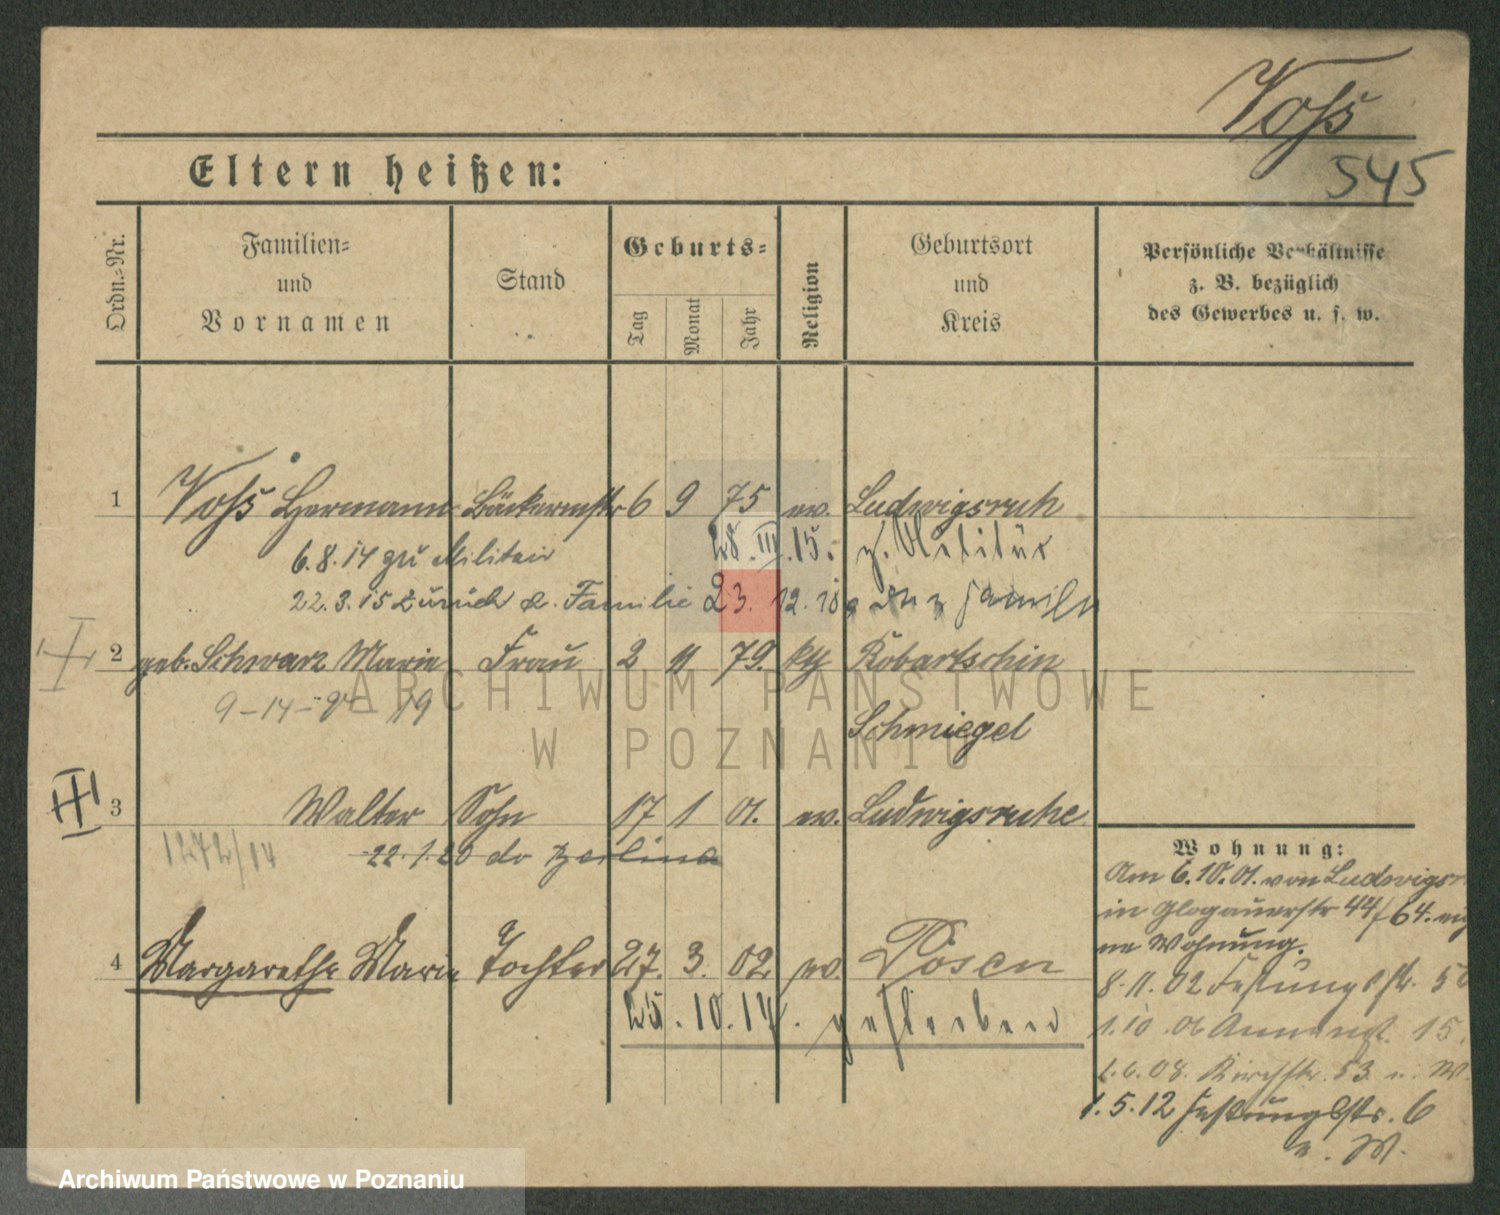 Voß
545
Eltern heißen:
Ordn.-Nr.
Familien- und Vornamen
Stand
Geburts-
Tag Monat Jahr
Religion
Geburtsort und Kreis
Persönliche Verhältnisse
z. B. bezüglich
des Gewerbes u. s. w.
1 Voß Hermann Bäckermstr 6 9 75 ev. Ludwigsruh
6.8.14 zu Militair 28.III.15. z. Militär
22.3.15 zurück z. Familie 23.12.18
2 geb. Schwarz Marie Frau 2 11 79. kth Robartschin
Schmiegel
3 Walter Sohn 17 1 01. ev. Ludwigsruhe
1272/14
22.1.20 do Berlina
4 Margarethe Marie Tochter 27. 3. 02 ev. Posen
25.10.14. gestorben
Wohnung:
Am 6.10.01. von Ludwigsr
in Glogauerstr 44/64.
Wohnung.
8.11.02 Festungsstr. 5
1.10.06 15.
08. Kirchstr. 53 n. W
1.5.12 Festungsstr. 6
n. W.
ARCHIWUM PAŃSTWOWE
W POZNANIU
Archiwum Państwowe w Poznaniu